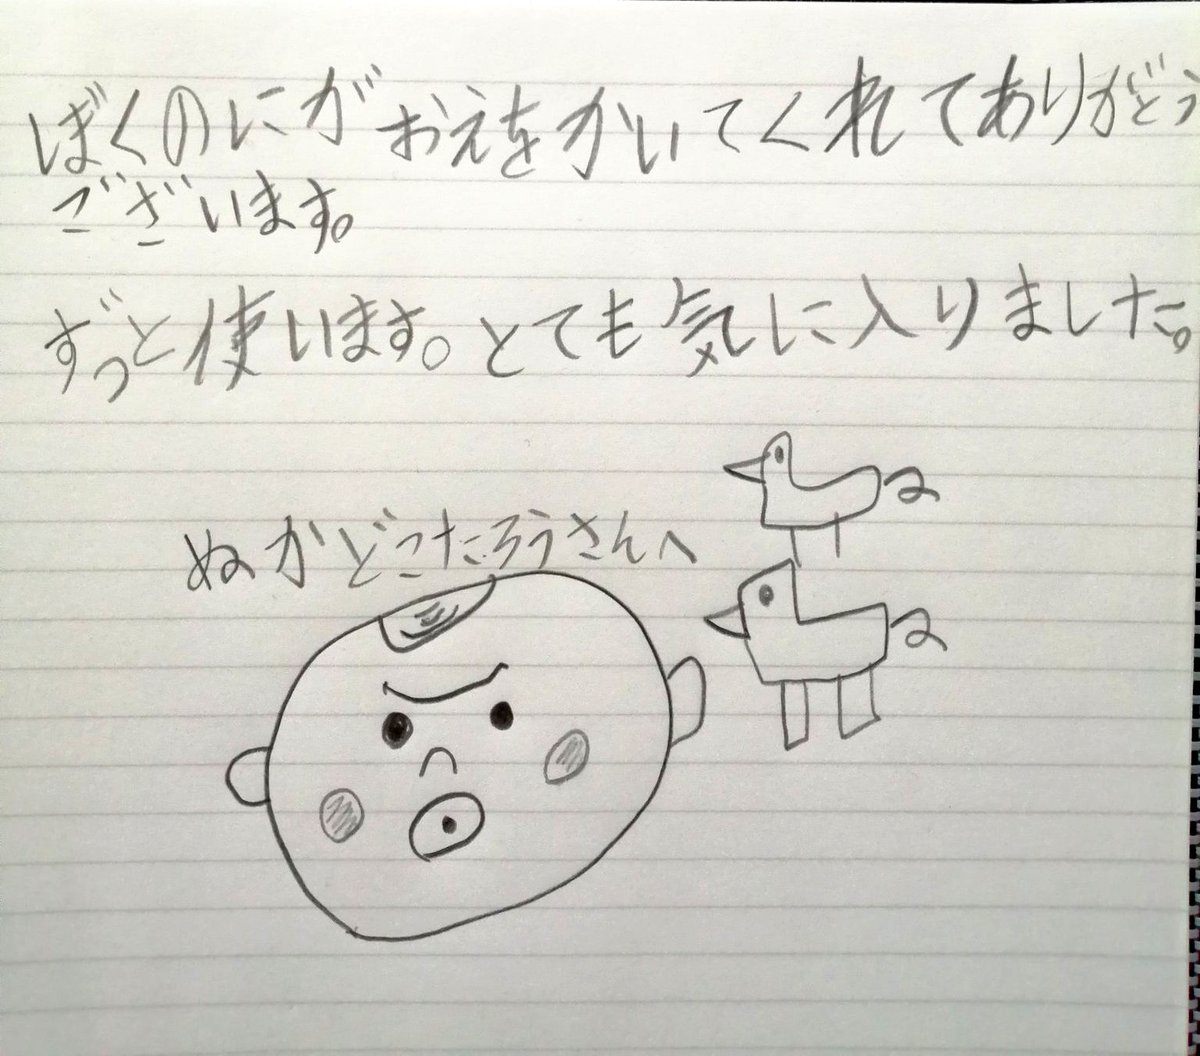 ぼくのにがおえをかいてくれてありがとう
ございます。
ずっと使います。とても気に入りました。
ぬかどこたろうさんへ